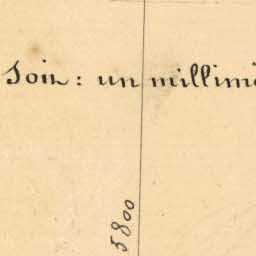 Soit : un millimè
5800